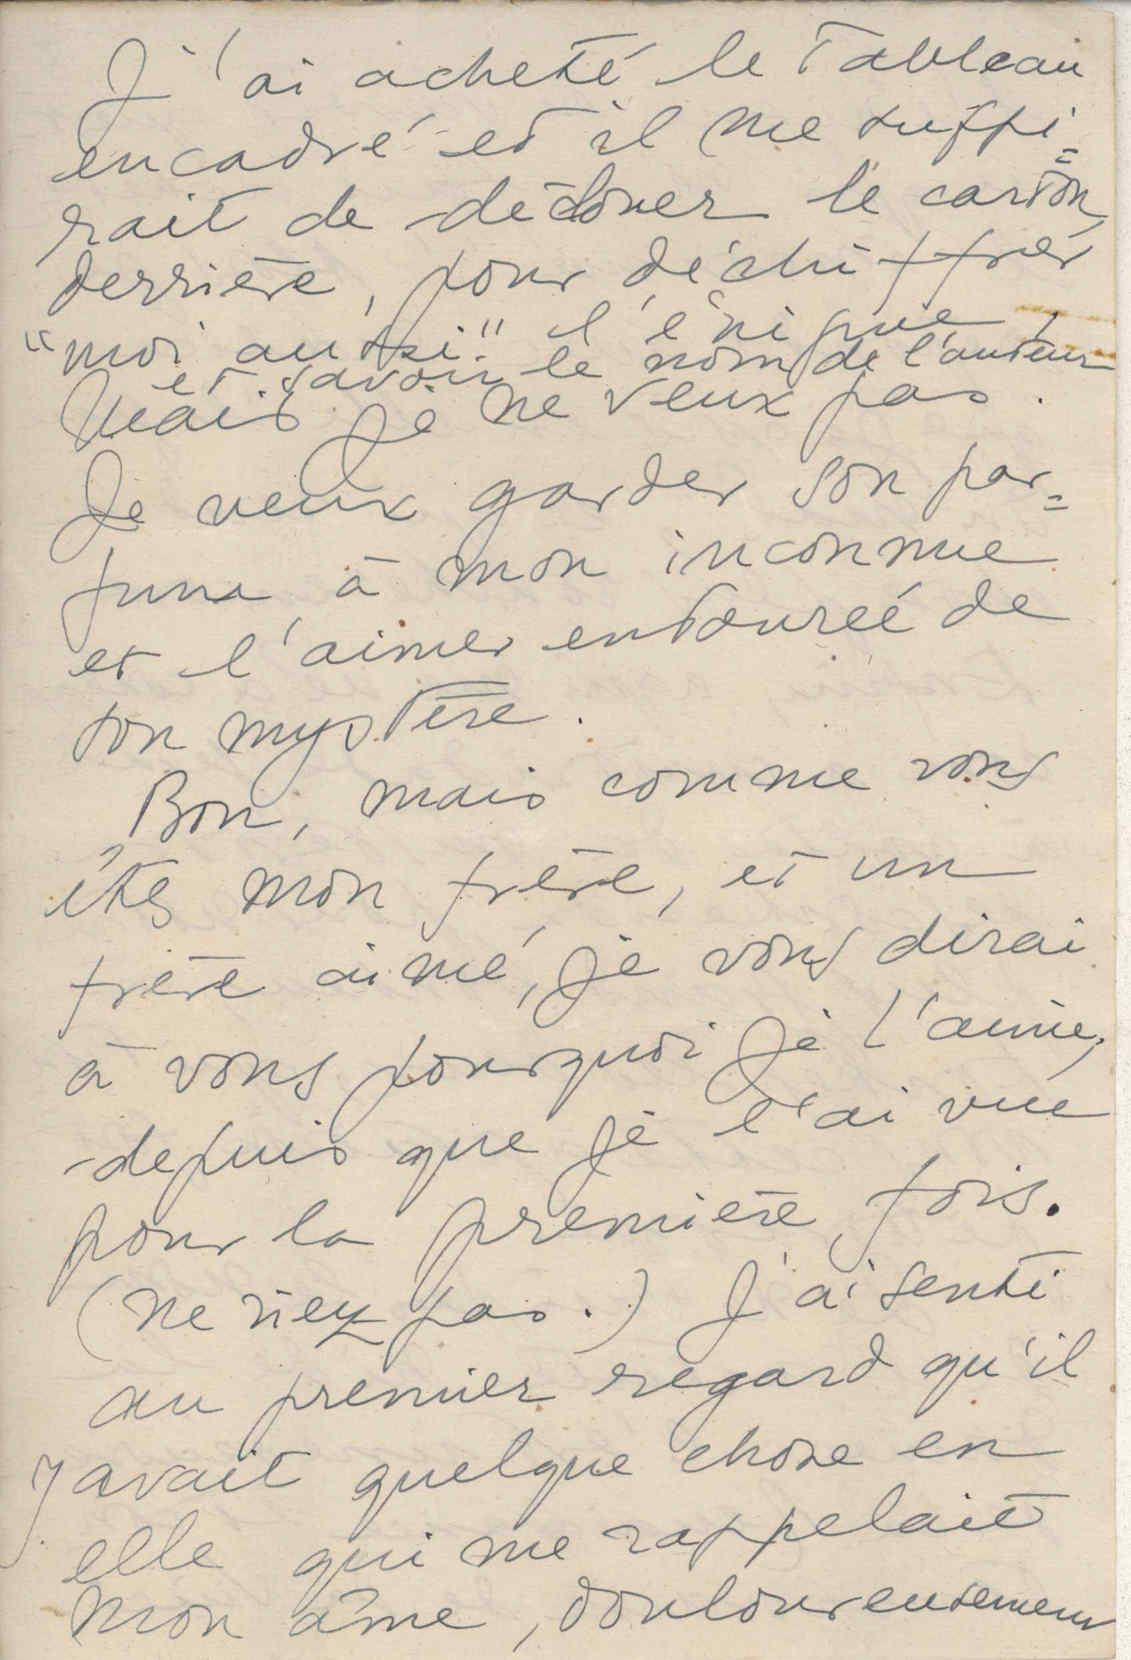 J'ai acheté le Tableau
encadré et il me suffi=
rait de déclouer le carton
derrière, pour déchiffrer
"moi aussi" l'énigme,
et savoir le nom de l'auteur
Mais je ne veux pas.
Je veux garder son par=
fum à mon inconnue
et l'aimer entourée de
son mystère.
Bon, mais comme vous
êtes mon frère, et un
frère aimé, je vous dirai
à vous pourquoi je l'aime,
depuis que je l'ai vue
pour la première fois.
(ne riez pas.) J'ai senti
au premier regard qu'il
y avait quelque chose en
elle qui me rappelait
mon âme, douloureusement